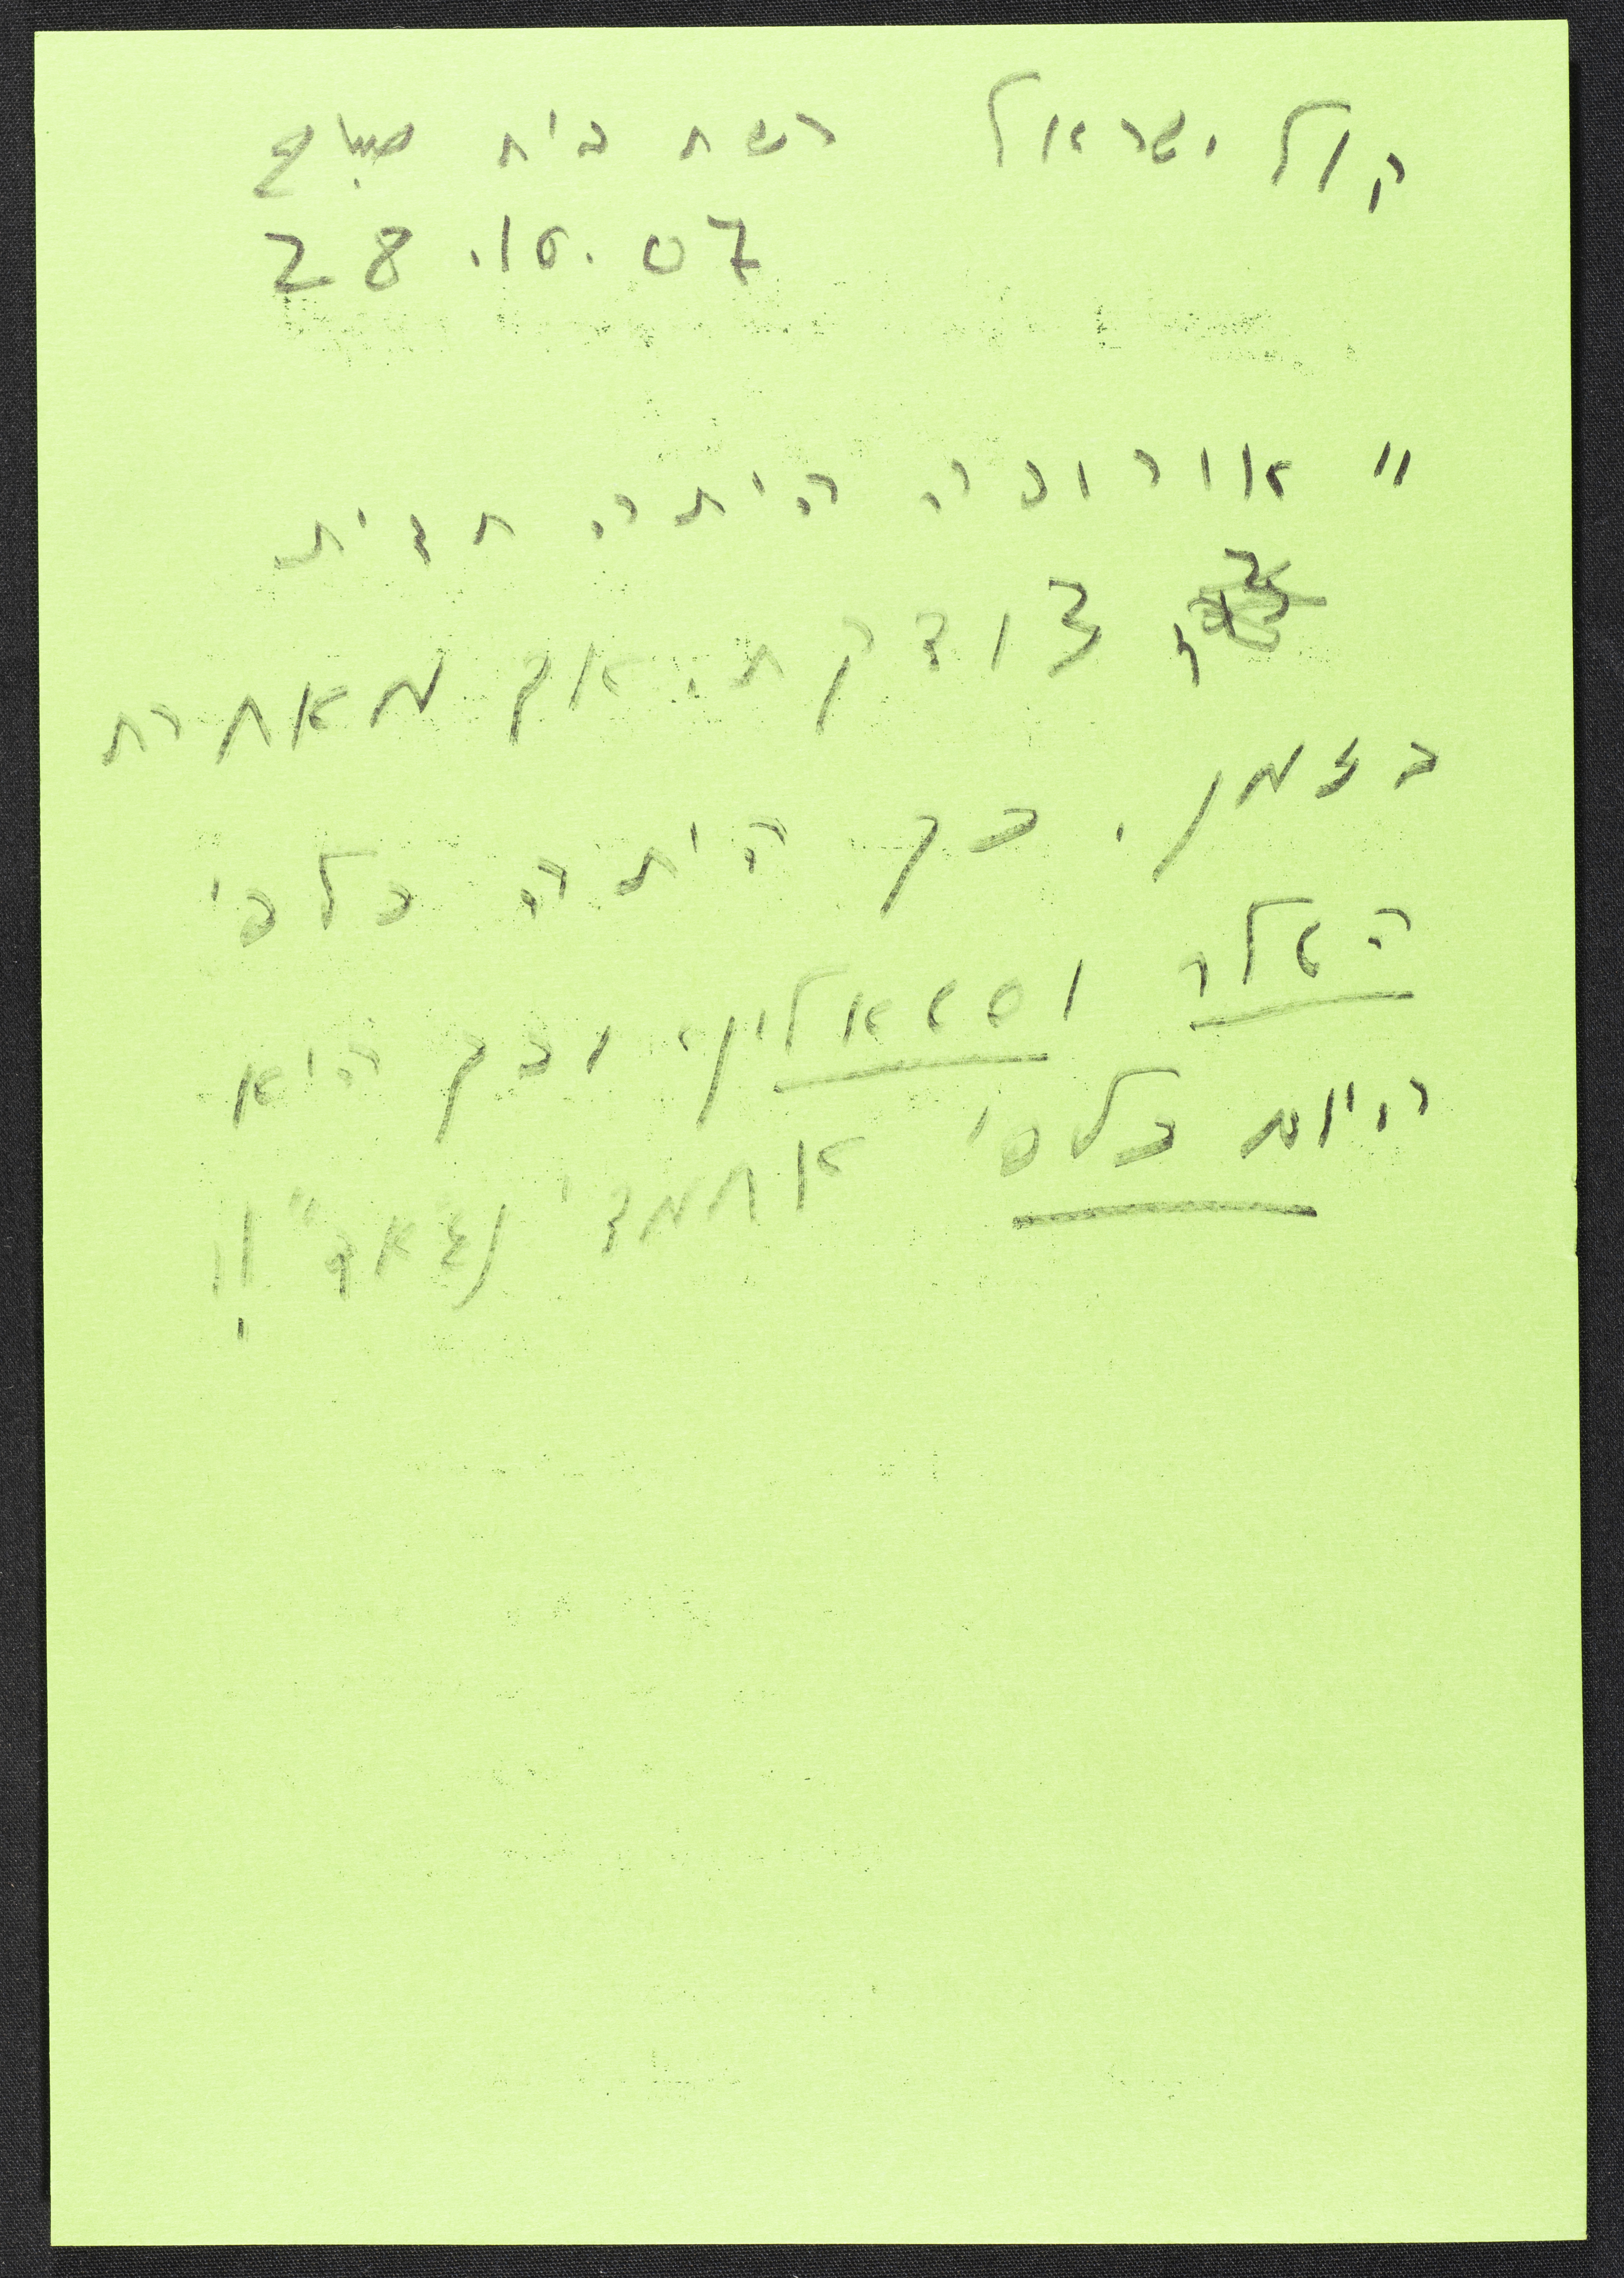 קול ישראל רשת בית صباح
28.10.07
"אירופה היתה תמיד
צודקת. אך מאחרת
בזמן. כך היתה כלפי
היטלר וסטאלין, וכך היא
היום כלפי אחמדי נז'אד"!!